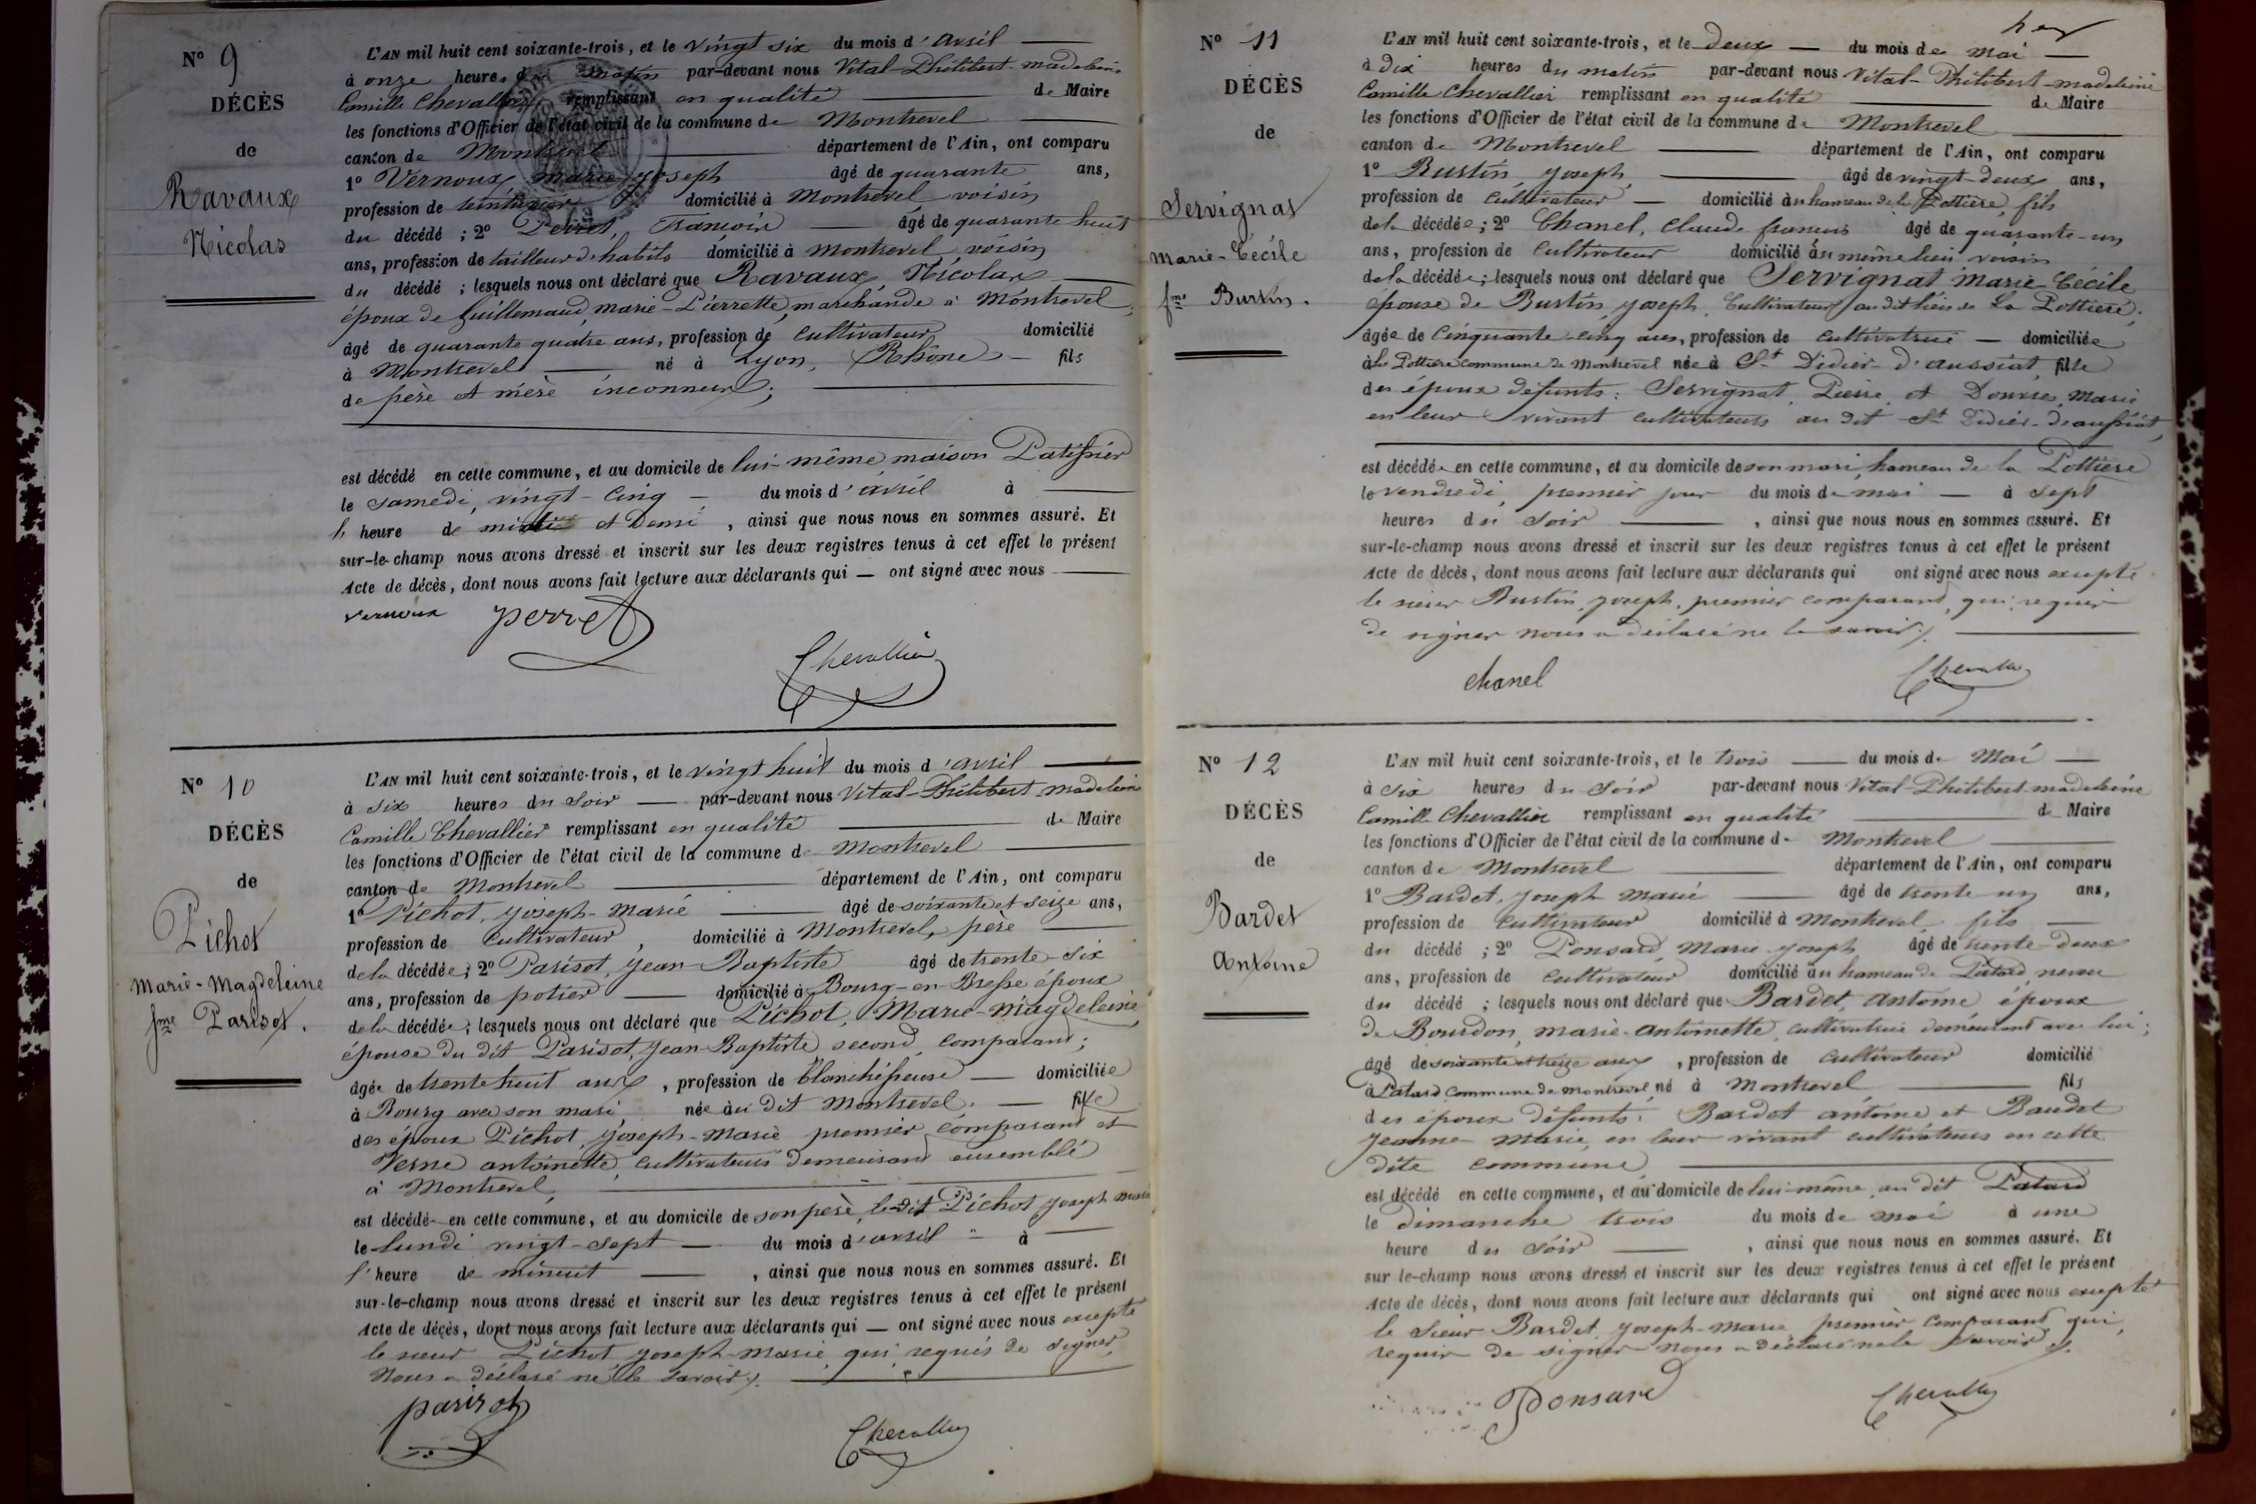 N° 9
DÉCÈS
de
Ravaux
Nicolas
L'AN mil huit cent soixante-trois, et le vingt six du mois d'avril
à onze heures du matin par-devant nous Vital-Philibert-madeleine
Camille Chevallier, remplissant en qualité de Maire
les fonctions d'Officier de l'état civil de la commune de Montrevel
canton de Montrevel département de l'Ain, ont comparu
1° Vernoux, marie joseph âgé de quarante ans,
profession de teinturier domicilié à Montrevel voisin
du décédé ; 2° Perret, François âgé de quarante huit
ans, profession de tailleur d'habits domicilié à Montrevel, voisin
du décédé ; lesquels nous ont déclaré que Ravaux, Nicolas
époux de Guillemaud, marie-Pierrette, marchande à Montrevel,
âgé de quarante quatre ans, profession de Cultivateur domicilié
à Montrevel né à Lyon, Rhône fils
de père et mère inconnus;
est décédé en cette commune, et au domicile de lui-même, maison Patissier
le samedi, vingt-cinq du mois d'avril à
l'heure de midi et demi, ainsi que nous nous en sommes assuré. Et
sur-le-champ nous avons dressé et inscrit sur les deux registres tenus à cet effet le présent
Acte de décès, dont nous avons fait lecture aux déclarants qui — ont signé avec nous
Vernoux perret
Chevallier
N° 10
DÉCÈS
de
Pichot
Marie-Magdeleine
fme Parisot.
L'AN mil huit cent soixante-trois, et le vingt huit du mois d'avril
à six heures du soir par-devant nous Vital-Philibert-madeleine
Camille Chevallier remplissant en qualité de Maire
les fonctions d'Officier de l'état civil de la commune de Montrevel
canton de Montrevel département de l'Ain, ont comparu
1° Pichot, joseph-Marie âgé de soixante et seize ans,
profession de cultivateur, domicilié à Montrevel, père
de la décédée; 2° Parisot, Jean-Baptiste âgé de trente-six
ans, profession de potier domicilié à Bourg-en-Bresse époux
de la décédée; lesquels nous ont déclaré que Pichot, Marie-Magdeleine,
épouse du dit Parisot, Jean-Baptiste second comparant;
âgée de trente huit ans, profession de blanchisseuse domiciliée
à Bourg avec son mari née au dit Montrevel. fille
des époux Pichot, joseph-Marie premier comparant et
Verne antoinette, cultivateurs demeurant ensemble
à Montrevel,
est décédée en cette commune, et au domicile de son père, le dit Pichot joseph marie
le lundi vingt-sept du mois d'avril à
l'heure de minuit, ainsi que nous nous en sommes assuré. Et
sur-le-champ nous avons dressé et inscrit sur les deux registres tenus à cet effet le présent
Acte de décès, dont nous avons fait lecture aux déclarants qui — ont signé avec nous excepté
le sieur Pichot joseph-marie qui, requis de signer,
nous a déclaré ne le savoir ;.
parisot
Chevallier
N° 11
DÉCÈS
de
Servignat
Marie-Cécile
fme Burtin.
L'AN mil huit cent soixante-trois, et le deux du mois de mai
à dix heures du matin par-devant nous Vital-Philibert-madeleine
Camille Chevallier remplissant en qualité de Maire
les fonctions d'Officier de l'état civil de la commune de Montrevel
canton de Montrevel département de l'Ain, ont comparu
1° Burtin, joseph, âgé de vingt-deux ans,
profession de cultivateur domicilié au hameau de la Pottière, fils
de la décédée; 2° Chanel, Claude françois âgé de quarante-un
ans, profession de Cultivateur domicilié au même lieu voisin
de la décédée; lesquels nous ont déclaré que Servignat marie-Cécile
épouse de Burtin, joseph, Cultivateur au dit lieu de La Pottière;
âgée de Cinquante-cinq ans, profession de cultivatrice domiciliée
à la Pottière commune de Montrevel née à St Didier-d'aussiat, fille
des époux défunts: Servignat, Pierre, et Donvre, Marie
en leur vivant cultivateurs au dit St Didier-d'aussiat,
est décédée en cette commune, et au domicile de son mari, hameau de la Pottière
le vendredi, premier jour du mois de mai à sept
heures du soir, ainsi que nous nous en sommes assuré. Et
sur-le-champ nous avons dressé et inscrit sur les deux registres tenus à cet effet le présent
Acte de décès, dont nous avons fait lecture aux déclarants qui ont signé avec nous excepté
le sieur Burtin, joseph, premier comparant, qui, requis
de signer nous a déclaré ne le savoir ;.
Chanel
Chevallier
N° 12
DÉCÈS
de
Bardet
Antoine
L'AN mil huit cent soixante-trois, et le trois du mois de Mai
à six heures du soir par-devant nous Vital-Philibert-madeleine
Camille Chevallier remplissant en qualité de Maire
les fonctions d'Officier de l'état civil de la commune de Montrevel
canton de Montrevel département de l'Ain, ont comparu
1° Bardet, joseph marie âgé de trente un ans,
profession de cultivateur domicilié à Montrevel, fils
du décédé ; 2° Ponsard, Marie joseph âgé de trente-deux
ans, profession de cultivateur domicilié au hameau de Patard neveu
du décédé ; lesquels nous ont déclaré que Bardet, antoine époux
de Bourdon, marie-antoinette, cultivatrice demeurant avec lui;
âgé de soixante et treize ans, profession de cultivateur domicilié
à Patard commune de Montrevel, né à Montrevel fils
des époux défunts: Bardet antoine et Baudet
Jeanne-Marie, en leur vivant cultivateurs en cette
dite commune
est décédé en cette commune, et au domicile de lui-même, au dit Patard
le dimanche trois du mois de mai à une
heure du soir, ainsi que nous nous en sommes assuré. Et
sur-le-champ nous avons dressé et inscrit sur les deux registres tenus à cet effet le présent
Acte de décès, dont nous avons fait lecture aux déclarants qui ont signé avec nous excepté
le sieur Bardet, joseph-marie premier comparant, qui,
requis de signer nous a déclaré ne le savoir ;.
Ponsard
Chevallier